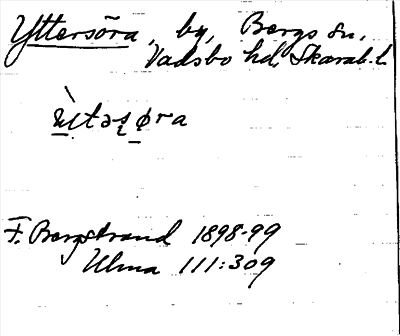 Yttersöra, by, Bergs sn,
Vadsbo hd, Skarab. l.
F. Bergstrand 1898-99
Ulma 111:309